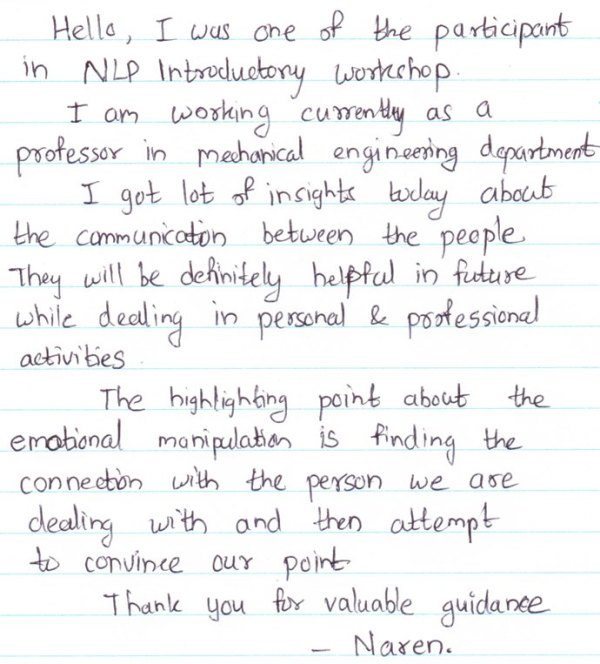 Hello, I was one of the participant
in NLP Introductory workshop.
I am working currently as a
professor in mechanical engineering department
I got lot of insights today about
the communication between the people
They will be definitely helpful in future
while dealing in personal & professional
activities.
The highlighting point about the
emotional manipulation is finding the
connection with the person we are
dealing with and then attempt
to convince our point
Thank you for valuable guidance
- Naren.